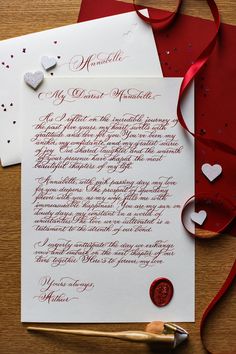 Annabelle
My Dearest Annabelle,
As I reflect on the incredible journey of
the past five years, my heart swells with
gratitude and love for you. You've been my
anchor, my confidante, and my greatest source
of joy. Our shared laughter and the warmth
of your presence have shaped the most
beautiful chapters of my life.
Annabelle, with each passing day, my love
for you deepens. The prospect of spending
forever with you as my wife fills me with
immeasurable happiness. You are my sun on
cloudy days, my constant in a world of
uncertainties. The love we've cultivated is a
testament to the strength of our bond.
I eagerly anticipate the day we exchange
vows and embark on the next chapter of
our lives together. Here's to forever, my love.
Yours always,
Arthur